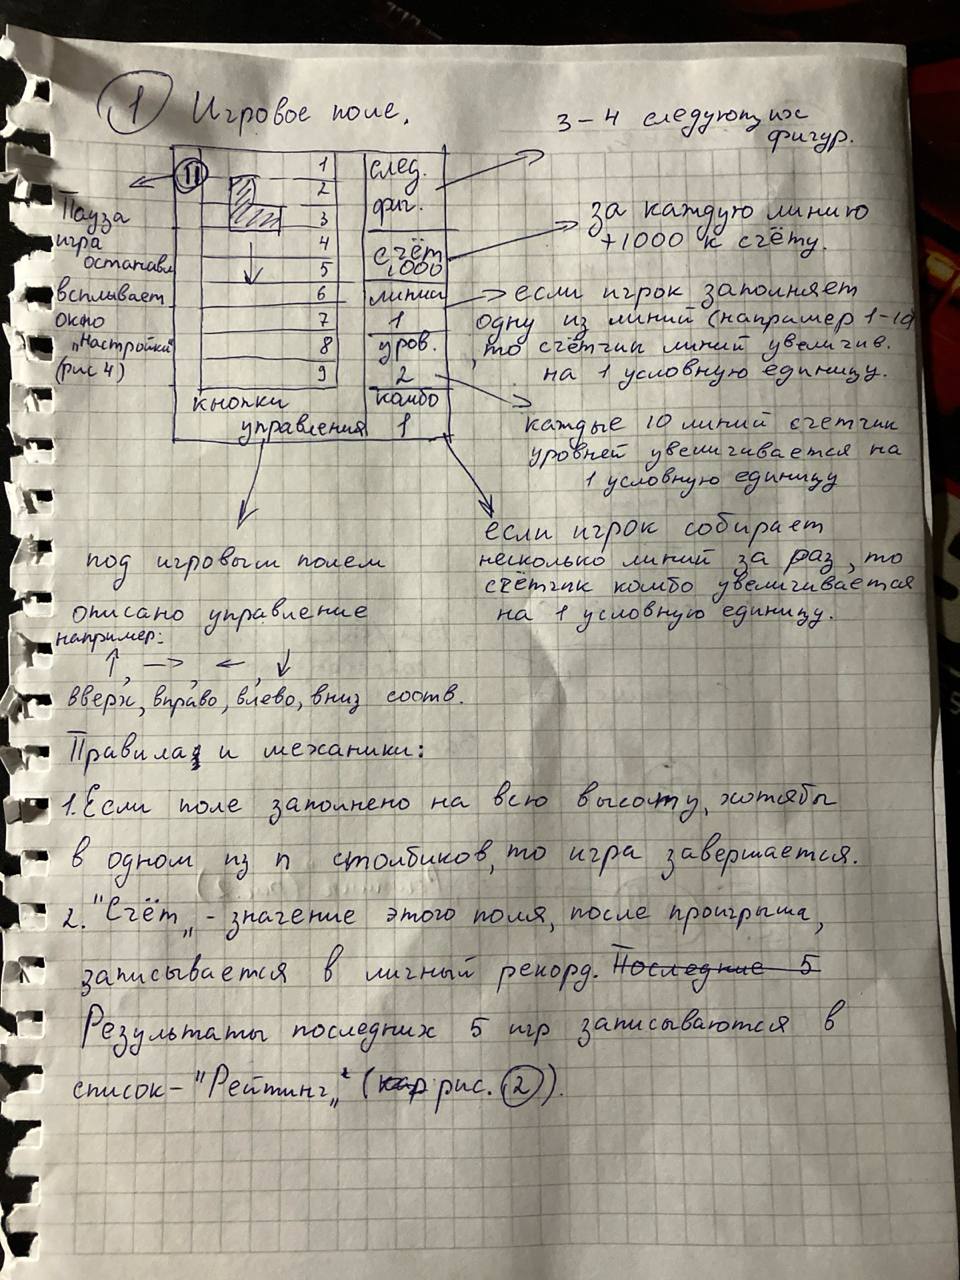 1 Игровое поле.
3-4 следующих
фигур.
1
2
3
4
5
6
7
8
9
след.
фиг.
счёт
1000
линии
1
уров.
2
комбо
1
кнопки
управления
Пауза
игра
останавл
всплывает
окно
"Настройки"
(рис 4)
за каждую линию
+1000 к счёту.
если игрок заполняет
одну из линий (например 1-10)
, то счётчик линий увеличив.
на 1 условную единицу.
каждые 10 линий счетчик
уровней увеличивается на
1 условную единицу
если игрок собирает
несколько линий за раз, то
счётчик комбо увеличивается
на 1 условную единицу.
под игровым полем
описано управление
например:
↑, →, ←, ↓
вверх, вправо, влево, вниз соотв.
Правила и механики:
1. Если поле заполнено на всю высоту, хотябы
в одном из n столбиков, то игра завершается.
2. "Счёт" - значение этого поля, после проигрыша,
записывается в личный рекорд. Последние 5
Результаты последних 5 игр записываются в
список - "Рейтинг" (рис. 2).